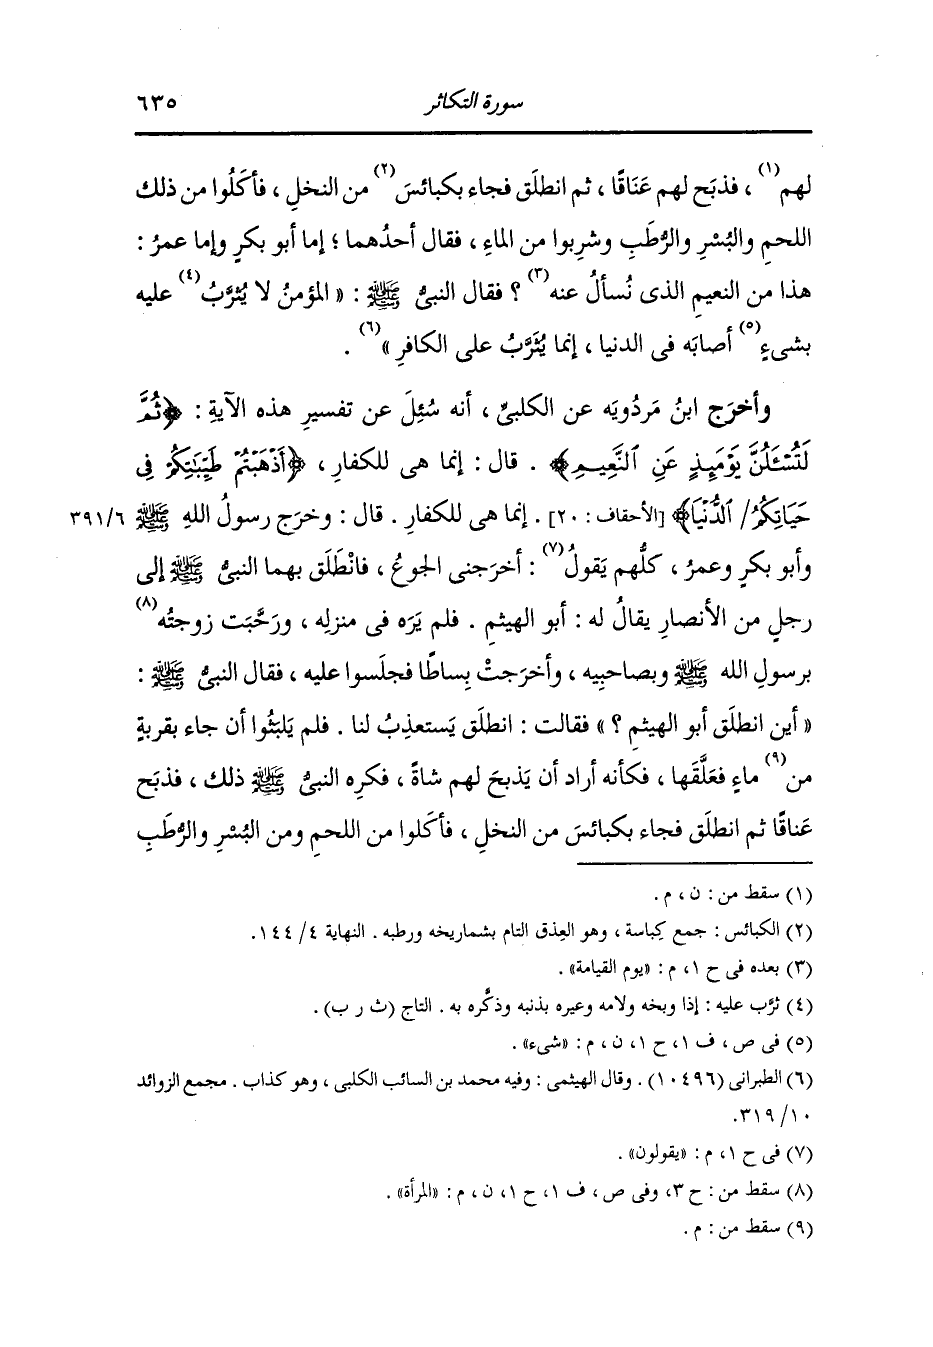 سورة التكاثر ٦٣٥
لهم(١) ، فذبَح لهم عَنَاقًا ، ثم انطلَق فجاء بكبائسَ(٢) من النخلِ ، فأكَلُوا من ذلك
اللحمِ والبُسْرِ والرُّطَبِ وشرِبوا من الماءِ ، فقال أحدُهما ؛ إما أبو بكرٍ وإما عمرُ :
هذا من النعيمِ الذى نُسألُ عنه(٣) ؟ فقال النبىُّ ﷺ : « المؤمنُ لا يُثرَّبُ(٤) عليه
بشىءٍ(٥) أصابَه فى الدنيا ، إنما يُثَرَّبُ على الكافرِ »(٦) .
وأخرَج ابنُ مَردُويَه عن الكلبىِّ ، أنه سُئِلَ عن تفسيرِ هذه الآيةِ : ﴿ثُمَّ
لَتُسْـَٔلُنَّ يَوْمَئِذٍ عَنِ ٱلنَّعِيمِ﴾ . قال : إنما هى للكفارِ ، ﴿أَذْهَبْتُمْ طَيِّبَٰتِكُمْ فِى
حَيَاتِكُمُ/ ٱلدُّنْيَا﴾ [الأحقاف : ٢٠] . إنما هى للكفارِ . قال : وخرَج رسولُ اللهِ ﷺ ٣٩١/٦
وأبو بكرٍ وعمرُ ، كلُّهم يَقولُ(٧) : أخرَجنى الجوعُ ، فانْطَلَق بهما النبىُّ ﷺ إلى
رجلٍ من الأنصارِ يقالُ له : أبو الهيثمِ . فلم يَرَه فى منزلِه ، ورَحَّبَت زوجتُه(٨)
برسولِ الله ﷺ وبصاحبِيه ، وأخرَجتْ بِساطًا فجلَسوا عليه ، فقال النبىُّ ﷺ :
« أين انطلَق أبو الهيثمِ ؟ » فقالت : انطلَق يَستعذِبُ لنا . فلم يَلبَثُوا أن جاء بقربةٍ
من(٩) ماءٍ فعَلَّقَها ، فكأنه أراد أن يَذبحَ لهم شاةً ، فكرِه النبىُّ ﷺ ذلك ، فذبَح
عَناقًا ثم انطلَق فجاء بكبائسَ من النخلِ ، فأكَلوا من اللحمِ ومن البُسْرِ والرُّطَبِ
(١) سقط من : ن ، م .
(٢) الكبائس : جمع كِباسة ، وهو العِذق التام بشماريخه ورطبه . النهاية ٤/ ١٤٤.
(٣) بعده فى ح ١، م : «يوم القيامة» .
(٤) ثرَّب عليه : إذا وبخه ولامه وعيره بذنبه وذكَّره به . التاج (ث ر ب) .
(٥) فى ص ، ف ١، ح ١، ن ، م : «شىء» .
(٦) الطبرانى (١٠٤٩٦) . وقال الهيثمى : وفيه محمد بن السائب الكلبى ، وهو كذاب . مجمع الزوائد
١٠/ ٣١٩.
(٧) فى ح ١، م : «يقولون» .
(٨) سقط من : ح ٣، وفى ص ، ف ١، ح ١، ن ، م : «المرأة» .
(٩) سقط من : م .